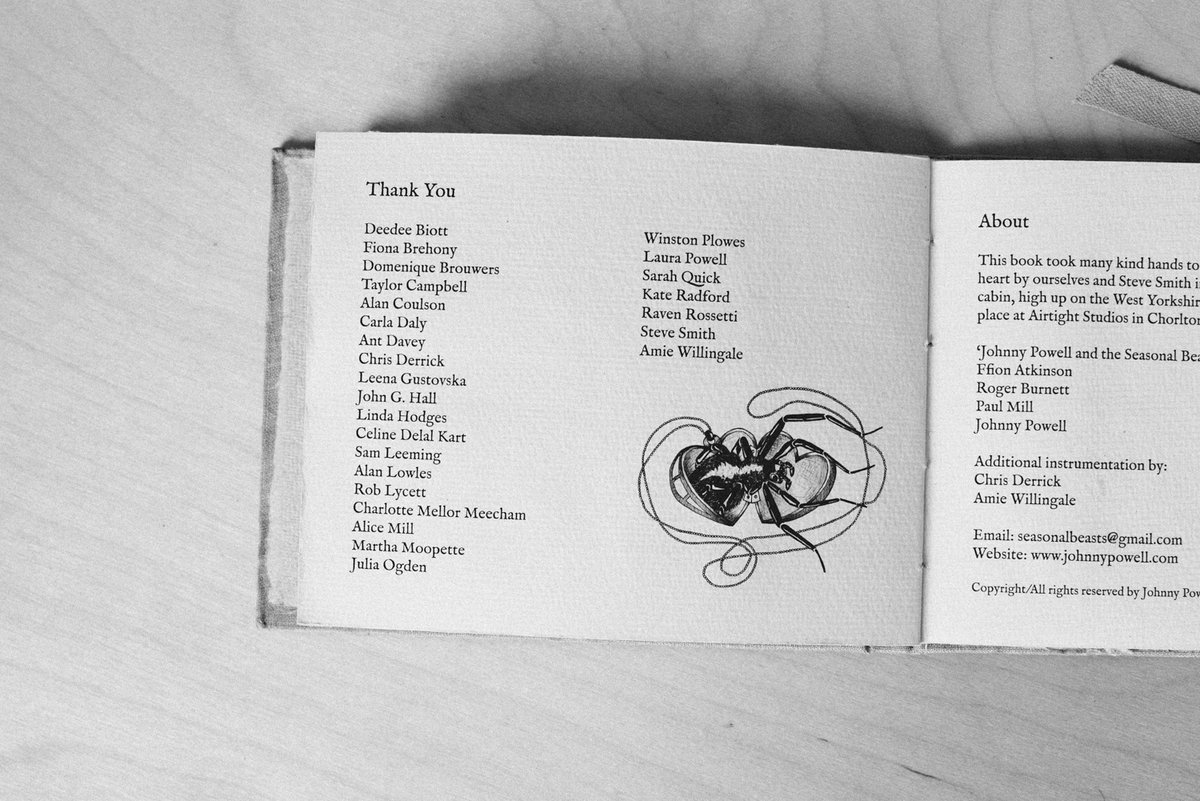 Thank You
Deedee Biott
Fiona Brehony
Domenique Brouwers
Taylor Campbell
Alan Coulson
Carla Daly
Ant Davey
Chris Derrick
Leena Gustovska
John G. Hall
Linda Hodges
Celine Delal Kart
Sam Leeming
Alan Lowles
Rob Lycett
Charlotte Mellor Meecham
Alice Mill
Martha Moopette
Julia Ogden
Winston Plowes
Laura Powell
Sarah Quick
Kate Radford
Raven Rossetti
Steve Smith
Amie Willingale
About
This book took many kind hands to
heart by ourselves and Steve Smith
cabin, high up on the West
place at Airtight Studios in
‘Johnny Powell and the Seasonal
Ffion Atkinson
Roger Burnett
Paul Mill
Johnny Powell
Additional instrumentation by:
Chris Derrick
Amie Willingale
Email: seasonalbeasts@gmail.com
Website: www.johnnypowell.com
Copyright/All rights reserved by Johnny